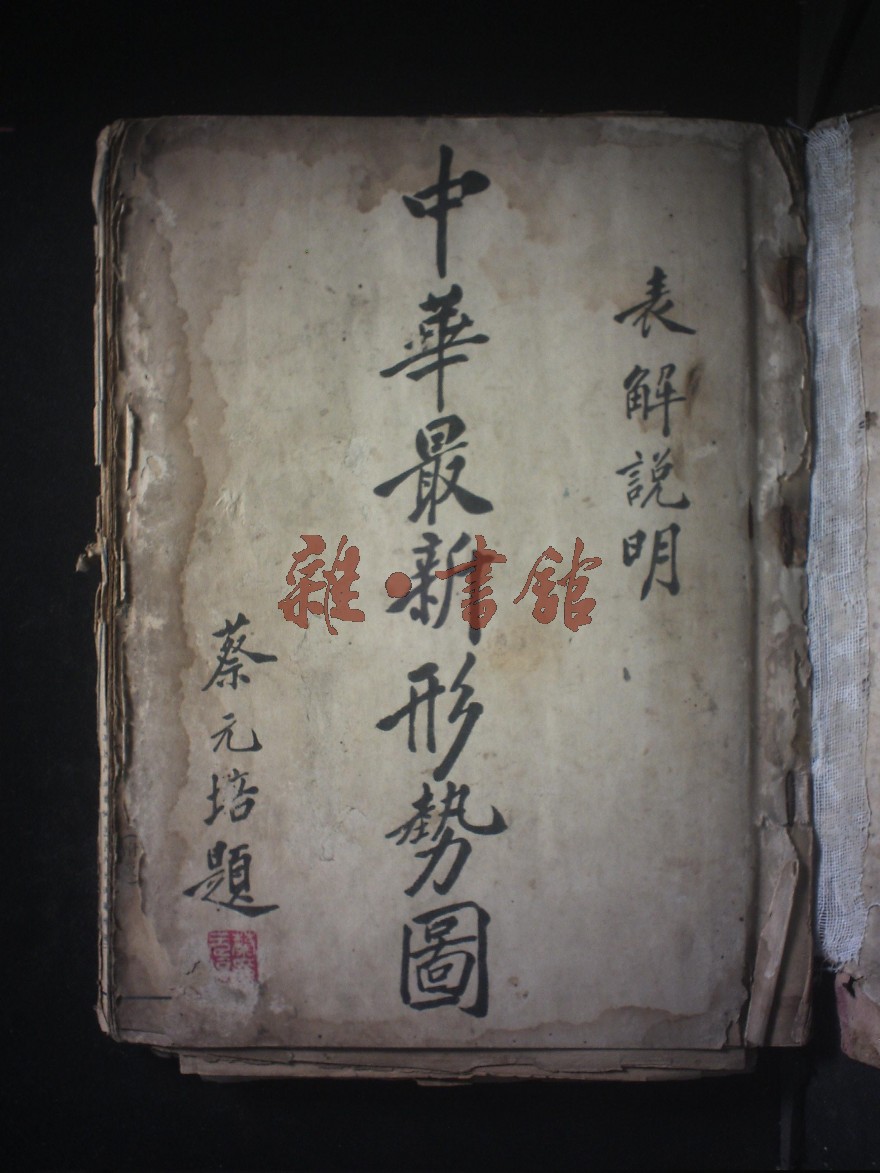 表解説明
中華最新形勢圖
蔡元培題
雜·書館